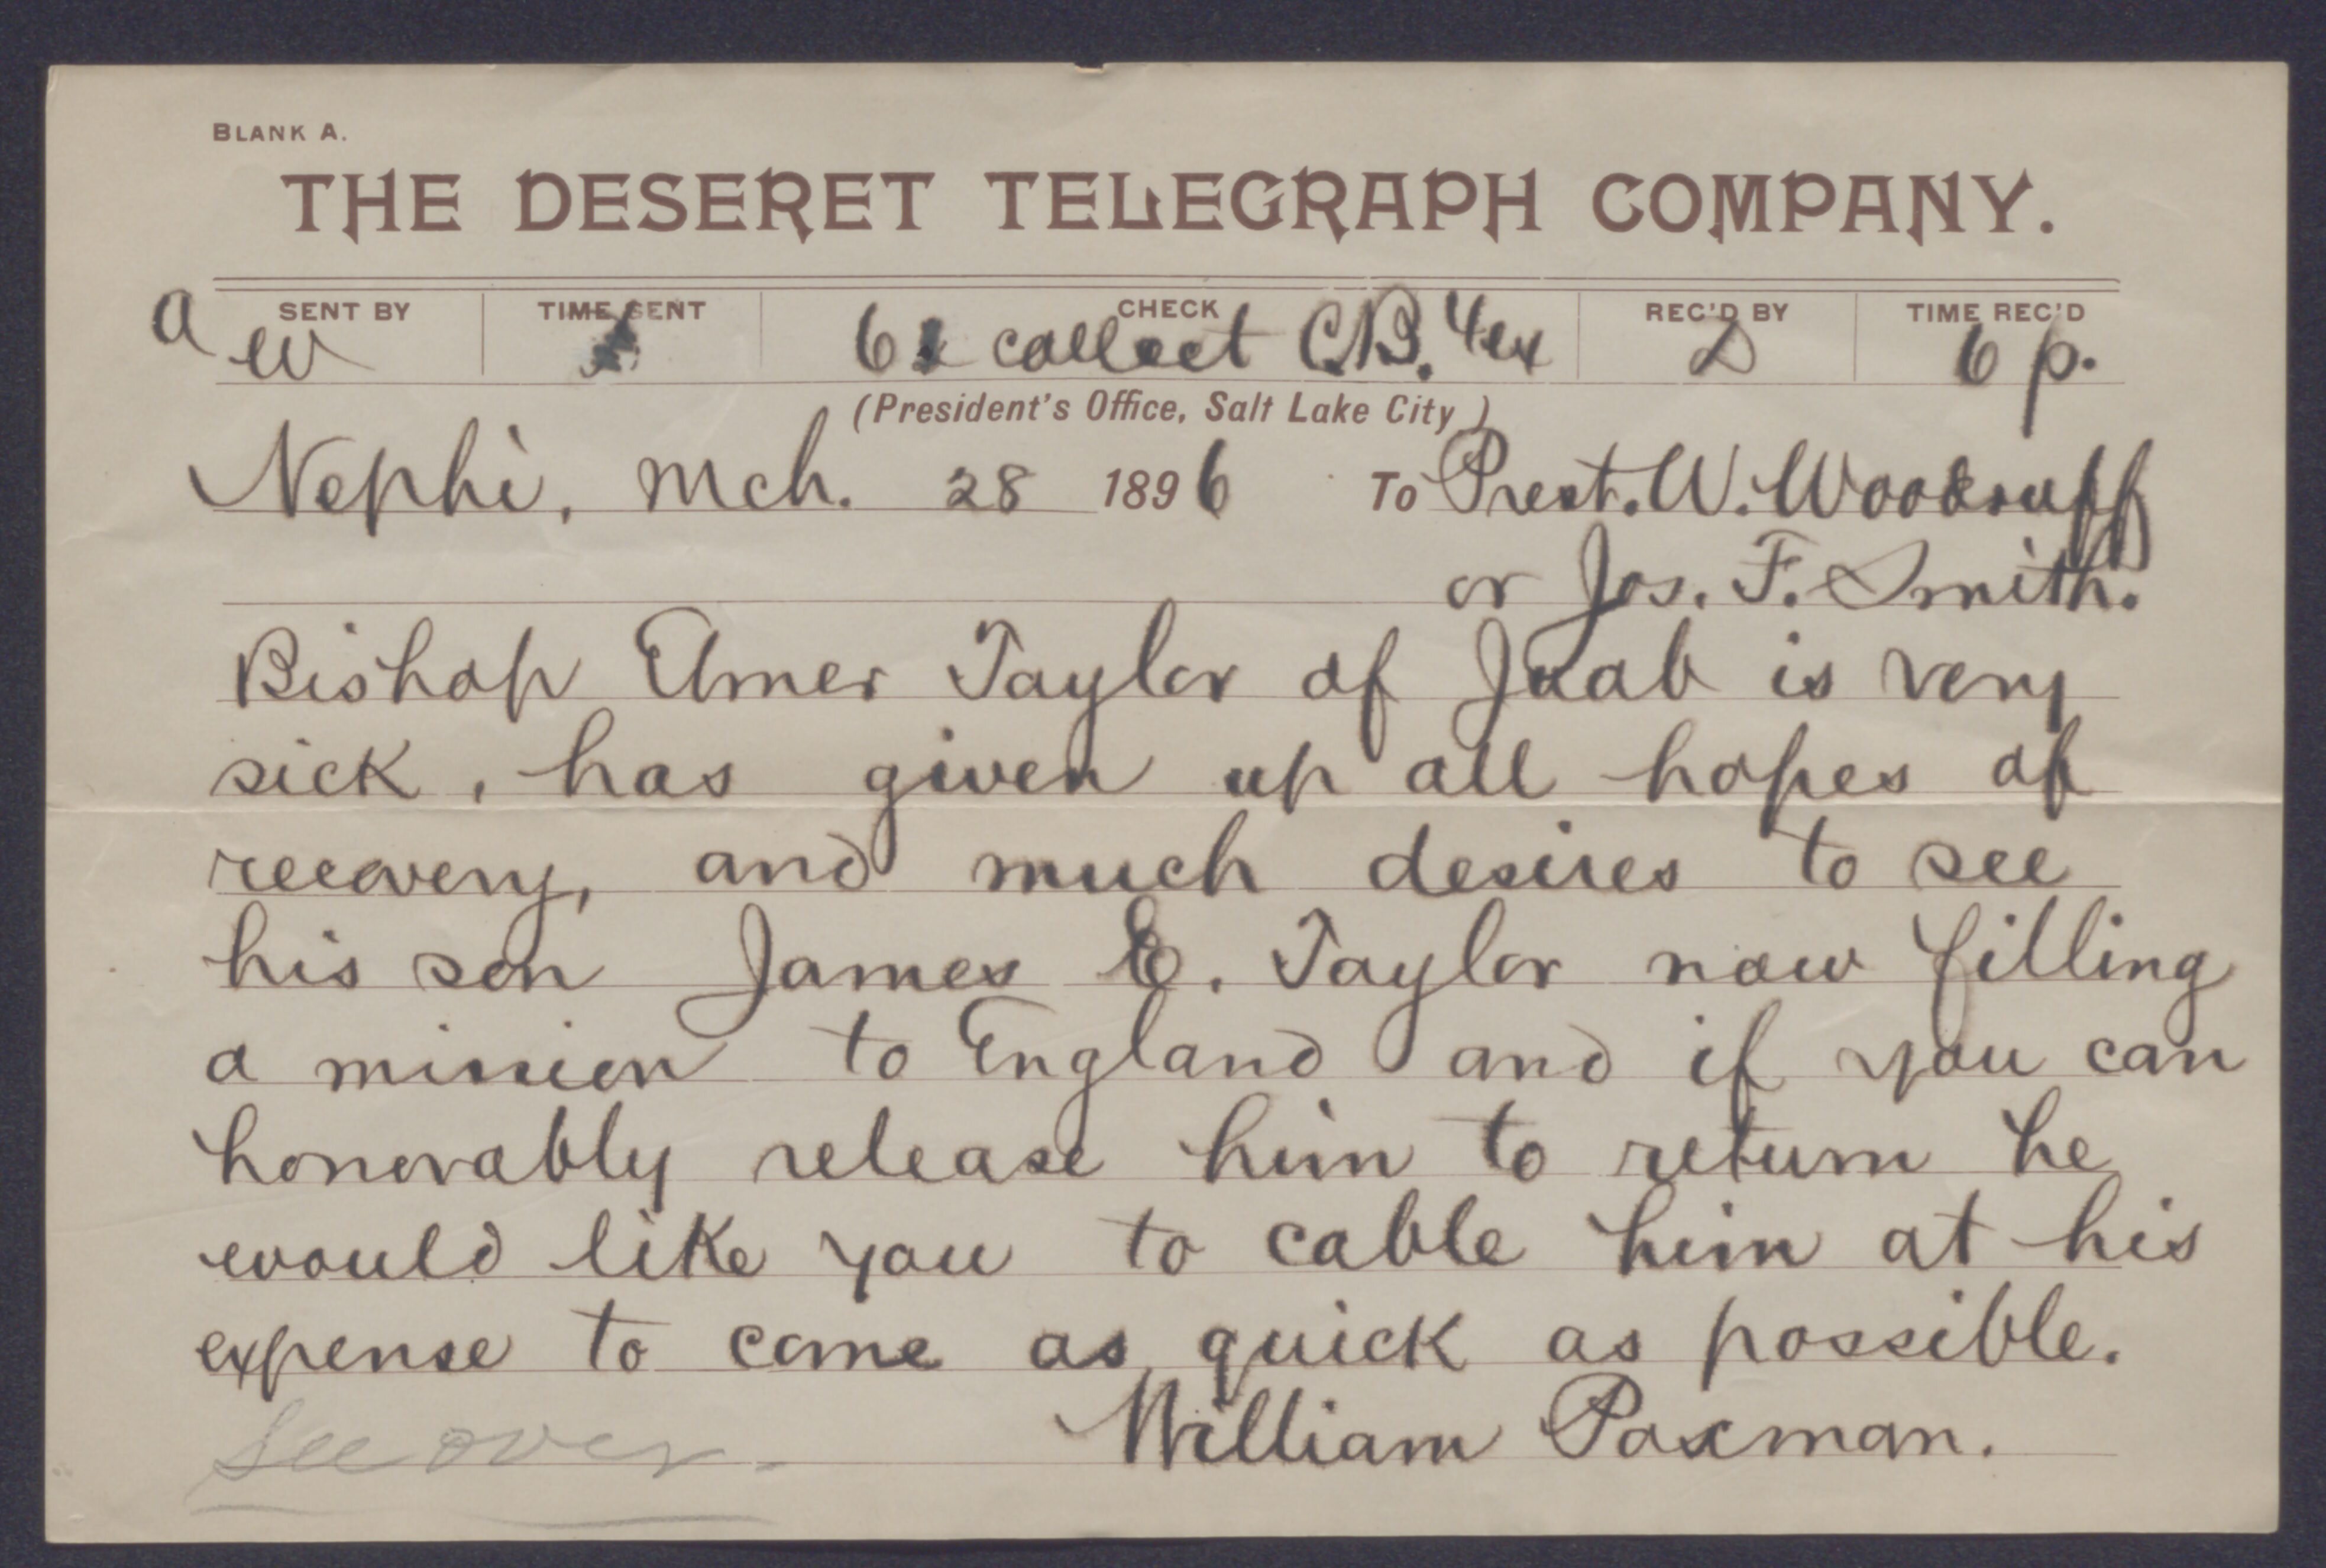 BLANK A.
THE DESERET TELEGRAPH COMPANY.
SENT BY TIME SENT CHECK REC'D BY TIME REC'D
a w collect C.B. 4ex D 6 p.
(President's Office, Salt Lake City.)
Nephi, Mch. 28 1896 To Prest. W. Woodruff
or Jos. F. Smith.
Bishop Elmer Taylor of Juab is very
sick, has given up all hopes of
recovery, and much desires to see
his son James E. Taylor now filling
a mission to England and if you can
honorably release him to return he
would like you to cable him at his
expense to come as quick as possible.
William Paxman.
See over.